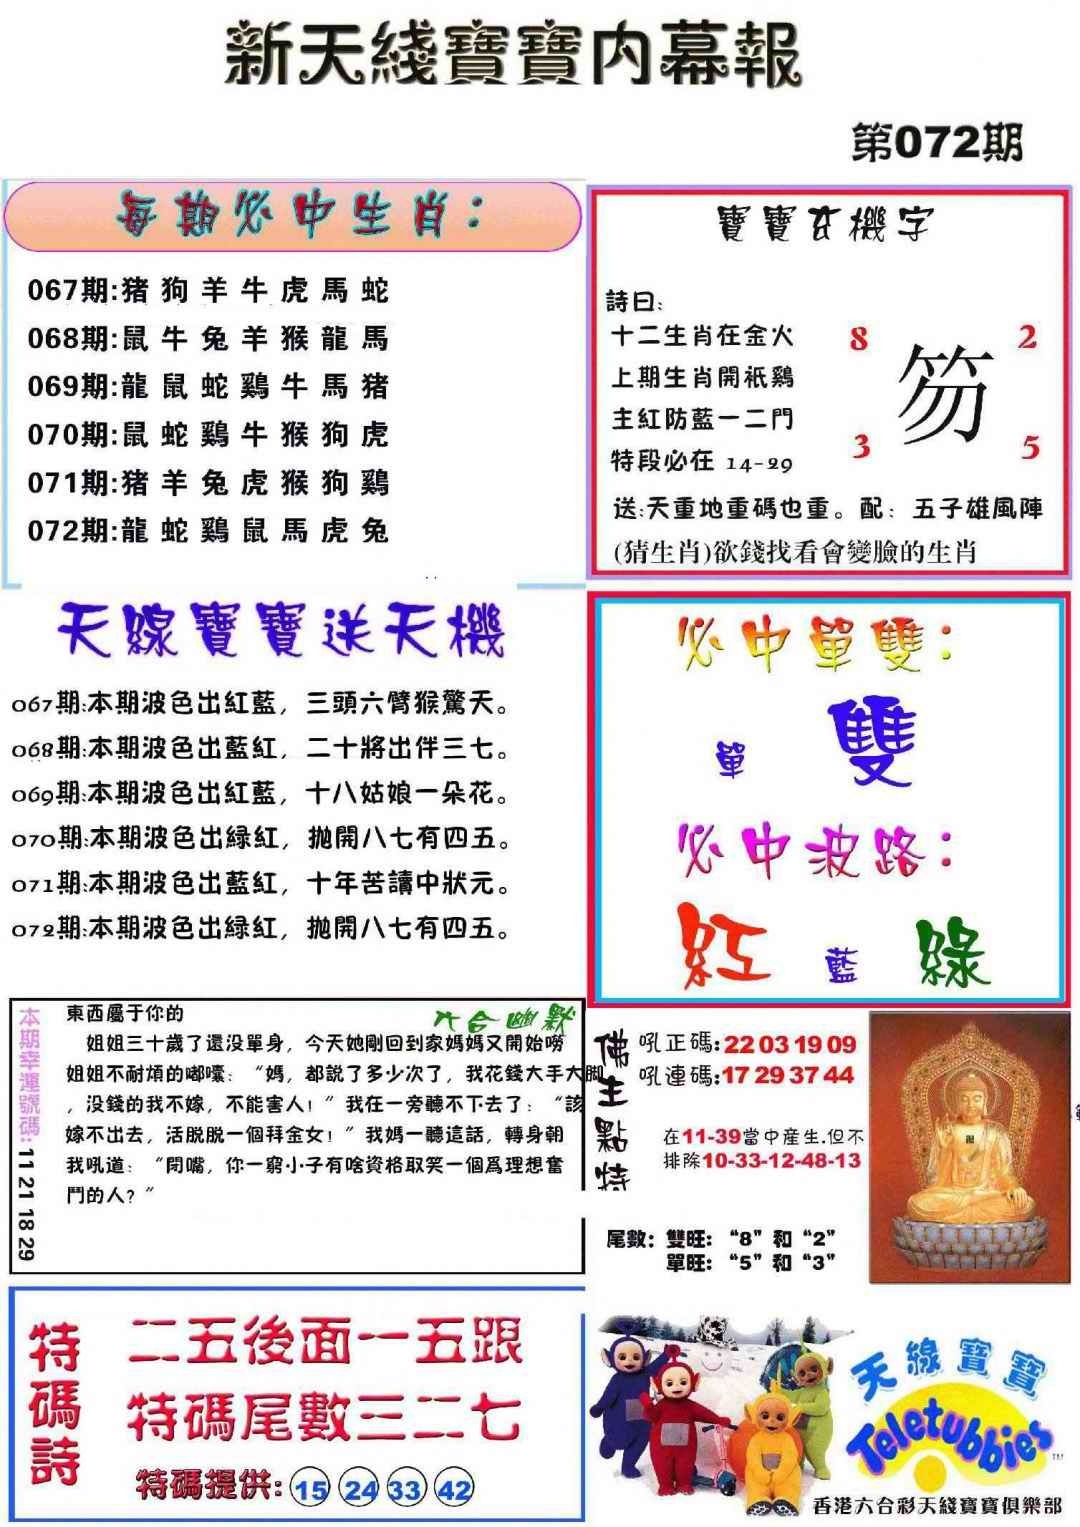 新天綫寶寶内幕報
第072期
每期必中生肖：
067期:猪狗羊牛虎馬蛇
068期:鼠牛兔羊猴龍馬
069期:龍鼠蛇鷄牛馬猪
070期:鼠蛇鷄牛猴狗虎
071期:猪羊兔虎猴狗鷄
072期:龍蛇鷄鼠馬虎兔
寶寶玄機字
詩曰:
十二生肖在金火
上期生肖開祇鷄
主紅防藍一二門
特段必在 14-29
8 2
笏
3 5
送:天重地重碼也重。配：五子雄風陣
(猜生肖)欲錢找看會變臉的生肖
天線寶寶送天機
067期:本期波色出紅藍，三頭六臂猴驚天。
068期:本期波色出藍紅，二十將出伴三七。
069期:本期波色出紅藍，十八姑娘一朵花。
070期:本期波色出緑紅，拋開八七有四五。
071期:本期波色出藍紅，十年苦讀中狀元。
072期:本期波色出緑紅，拋開八七有四五。
必中單雙：
單 雙
必中波路：
紅 藍 綠
本期幸運號碼: 11 21 18 29
六合幽默
東西屬于你的
姐姐三十歲了還没單身，今天她剛回到家媽媽又開始嘮
姐姐不耐煩的嘟囔：“媽，都説了多少次了，我花錢大手大脚
，没錢的我不嫁，不能害人！”我在一旁聽不下去了：“該
嫁不出去，活脱脱一個拜金女！”我媽一聽這話，轉身朝
我吼道：“閉嘴，你一窮小子有啥資格取笑一個爲理想奮
鬥的人？”
佛主點特
吼正碼:22 03 19 09
吼連碼:17 29 37 44
在11-39當中産生.但不
排除10-33-12-48-13
尾數：雙旺：“8”和“2”
單旺：“5”和“3”
特碼詩
二五後面一五跟
特碼尾數三二七
特碼提供: 15 24 33 42
天線寶寶
Teletubbies
TM
香港六合彩天綫寶寶俱樂部